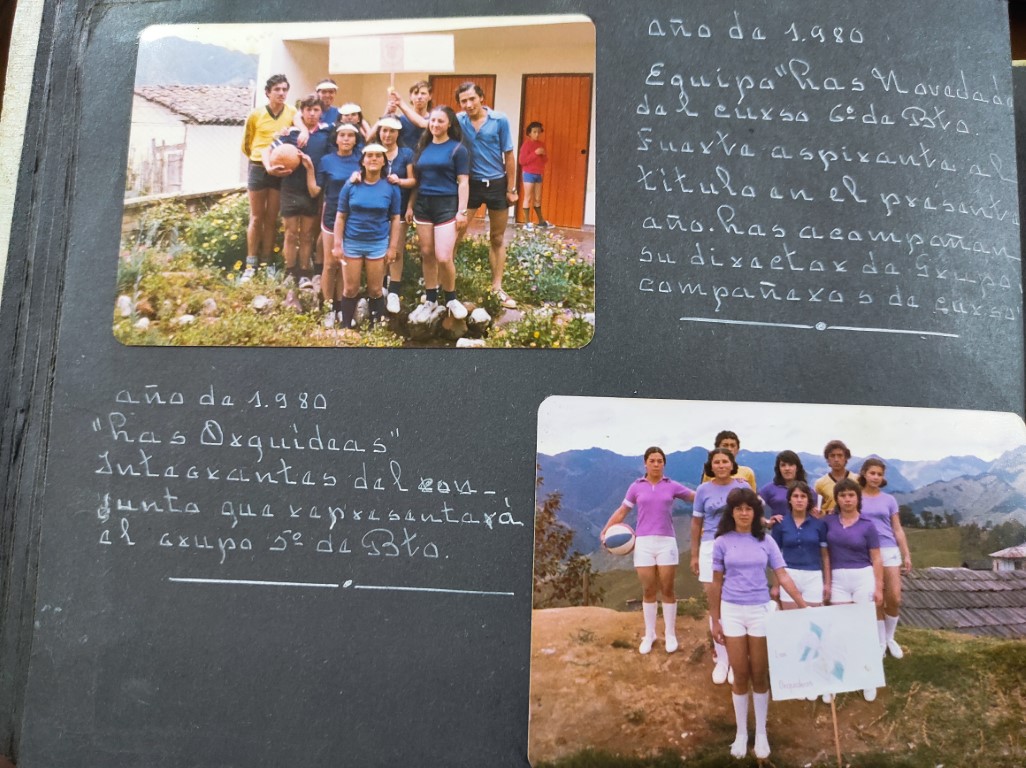 año de 1.980
Equipo "Las Novedade
del curso 6º de Bto
Fuerte aspirante al
titulo en el presente
año. Las acompañan
su director de Grupo
compañeros de curso
año de 1.980
"Las Orquideas"
Integrantes del con-
junto que representará
el grupo 5º de Bto.
Las
Orquideas